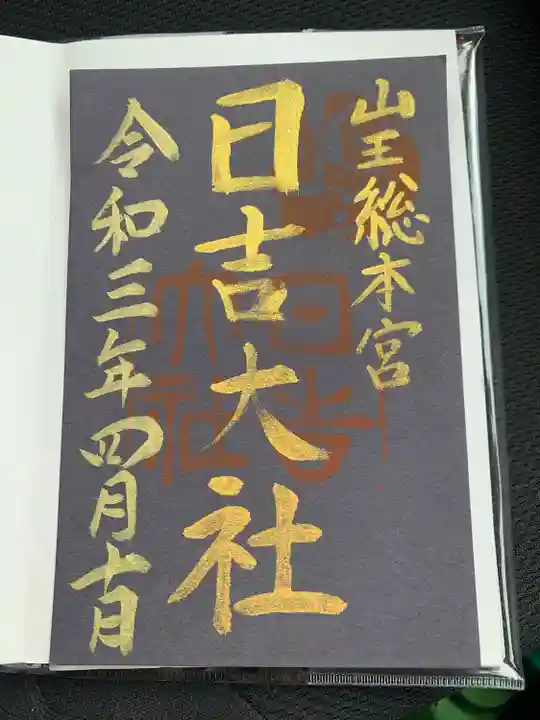 山王総本宮
日吉大社
令和三年四月十日
日吉
大社